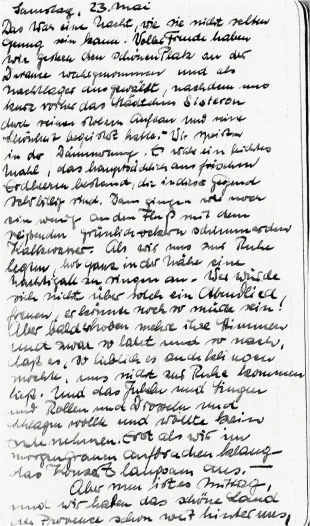 Samstag, 23. Mai
Das war eine Nacht, wie sie nicht selten
genug sein kann. Voller Freude haben
wir gestern den schönen Platz an der
Durance wahrgenommen und als
Nachtlager ausgewählt, nachdem uns
kurz vorher das Städtchen Sisteron
durch seinen Aufbau und seine
Schönheit begeistert hatte. Wir speisten
in der Dämmerung. Es war ein leichtes
Mahl, das hauptsächlich aus frischen
Erdbeeren bestand, die in dieser Gegend
sehr billig sind. Dann gingen wir noch
ein wenig an den Fluß mit dem
reißenden grünlich schimmernden
Kaltwasser. Als wir uns zur Ruhe
legten, hob ganz in der Nähe eine
Nachtigall zu singen an. Wer würde
sich nicht über solch ein Abendlied
freuen, er könnte noch so müde sein!
Aber bald erhoben mehrere ihre Stimmen
und zwar so laut und so nach,
daß es, so lieblich es auch klingen
mochte, uns nicht zur Ruhe kommen
ließ. Und das Jubeln und Singen
und Rollen und Drosseln und
Schlagen wollte und wollte kein
Ende nehmen. Erst als wir im
Morgengrauen aufbrachen klang
das Konzert langsam aus. —
Aber nun ist es Mittag,
und wir haben das schöne Land
der Provence schon weit hinter uns,